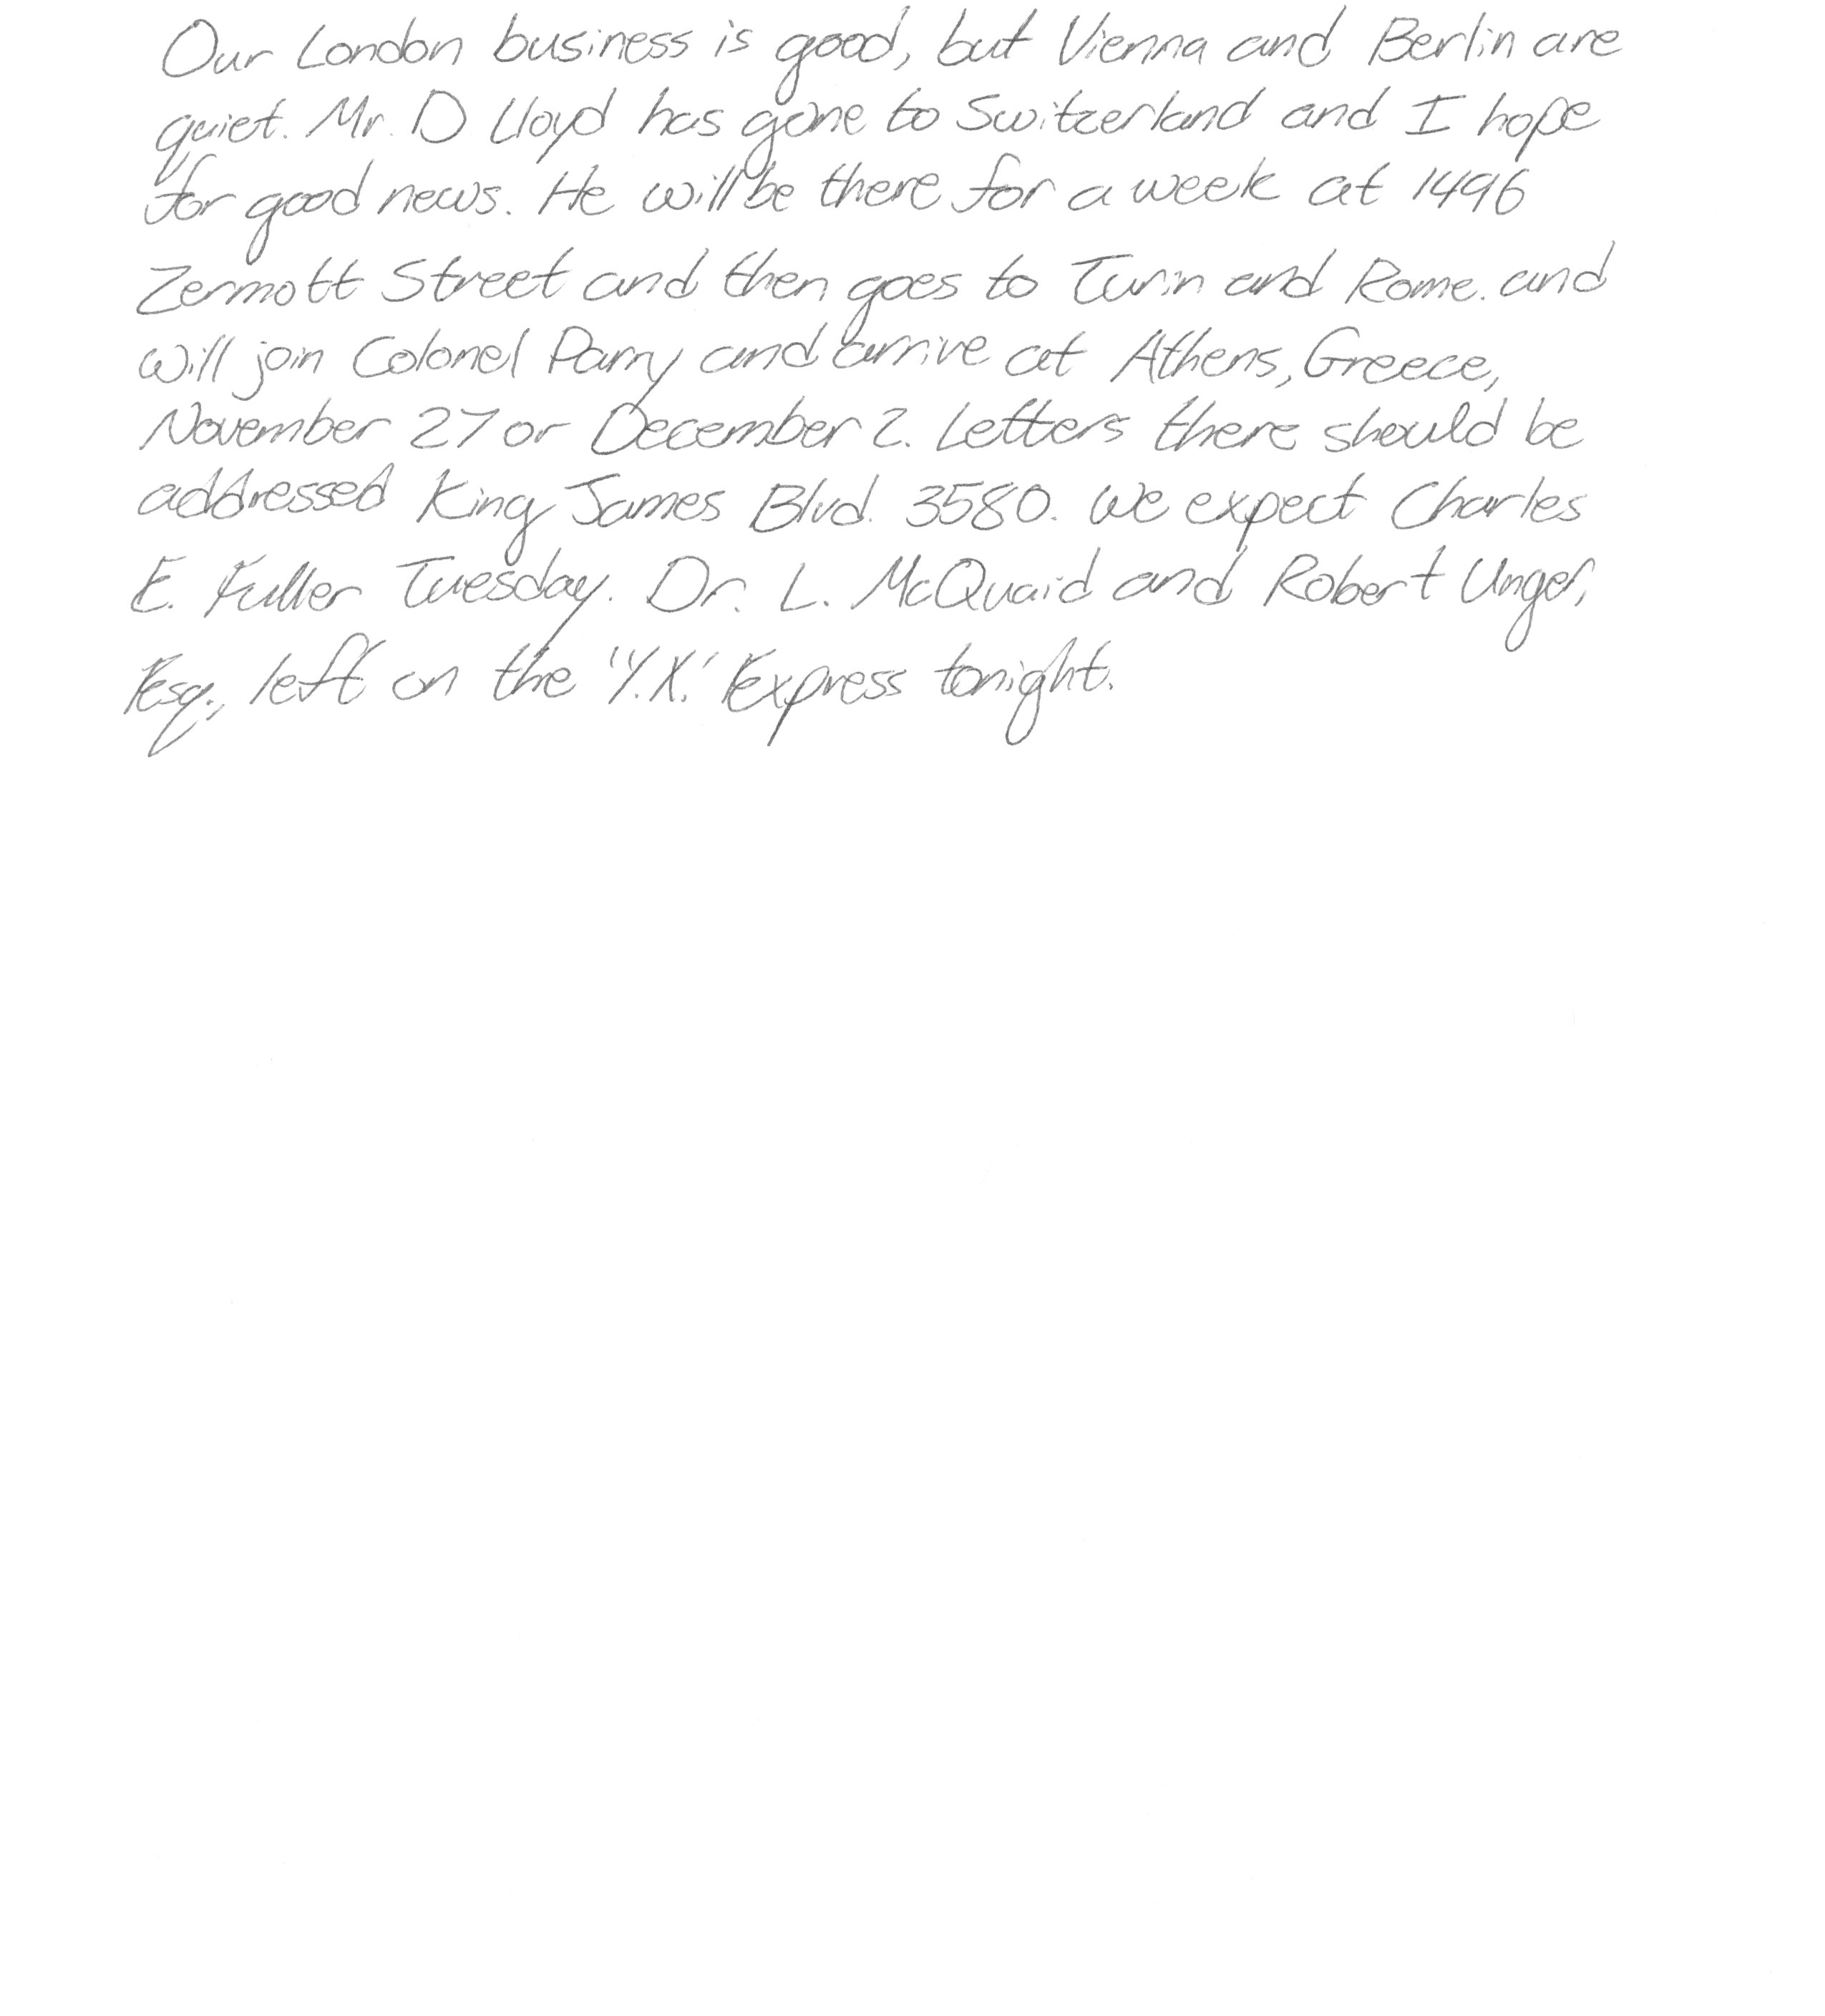 Our London business is good, but Vienna and Berlin are
quiet. Mr. D Lloyd has gone to Switzerland and I hope
for good news. He will be there for a week at 1496
Zermott Street and then goes to Turin and Rome. and
will join Colonel Parry and arrive at Athens, Greece,
November 27 or December 2. Letters there should be
addressed King James Blvd. 3580. We expect Charles
E. Fuller Tuesday. Dr. L. McQuaid and Robert Unger,
Esq., left on the "Y.X." Express tonight.